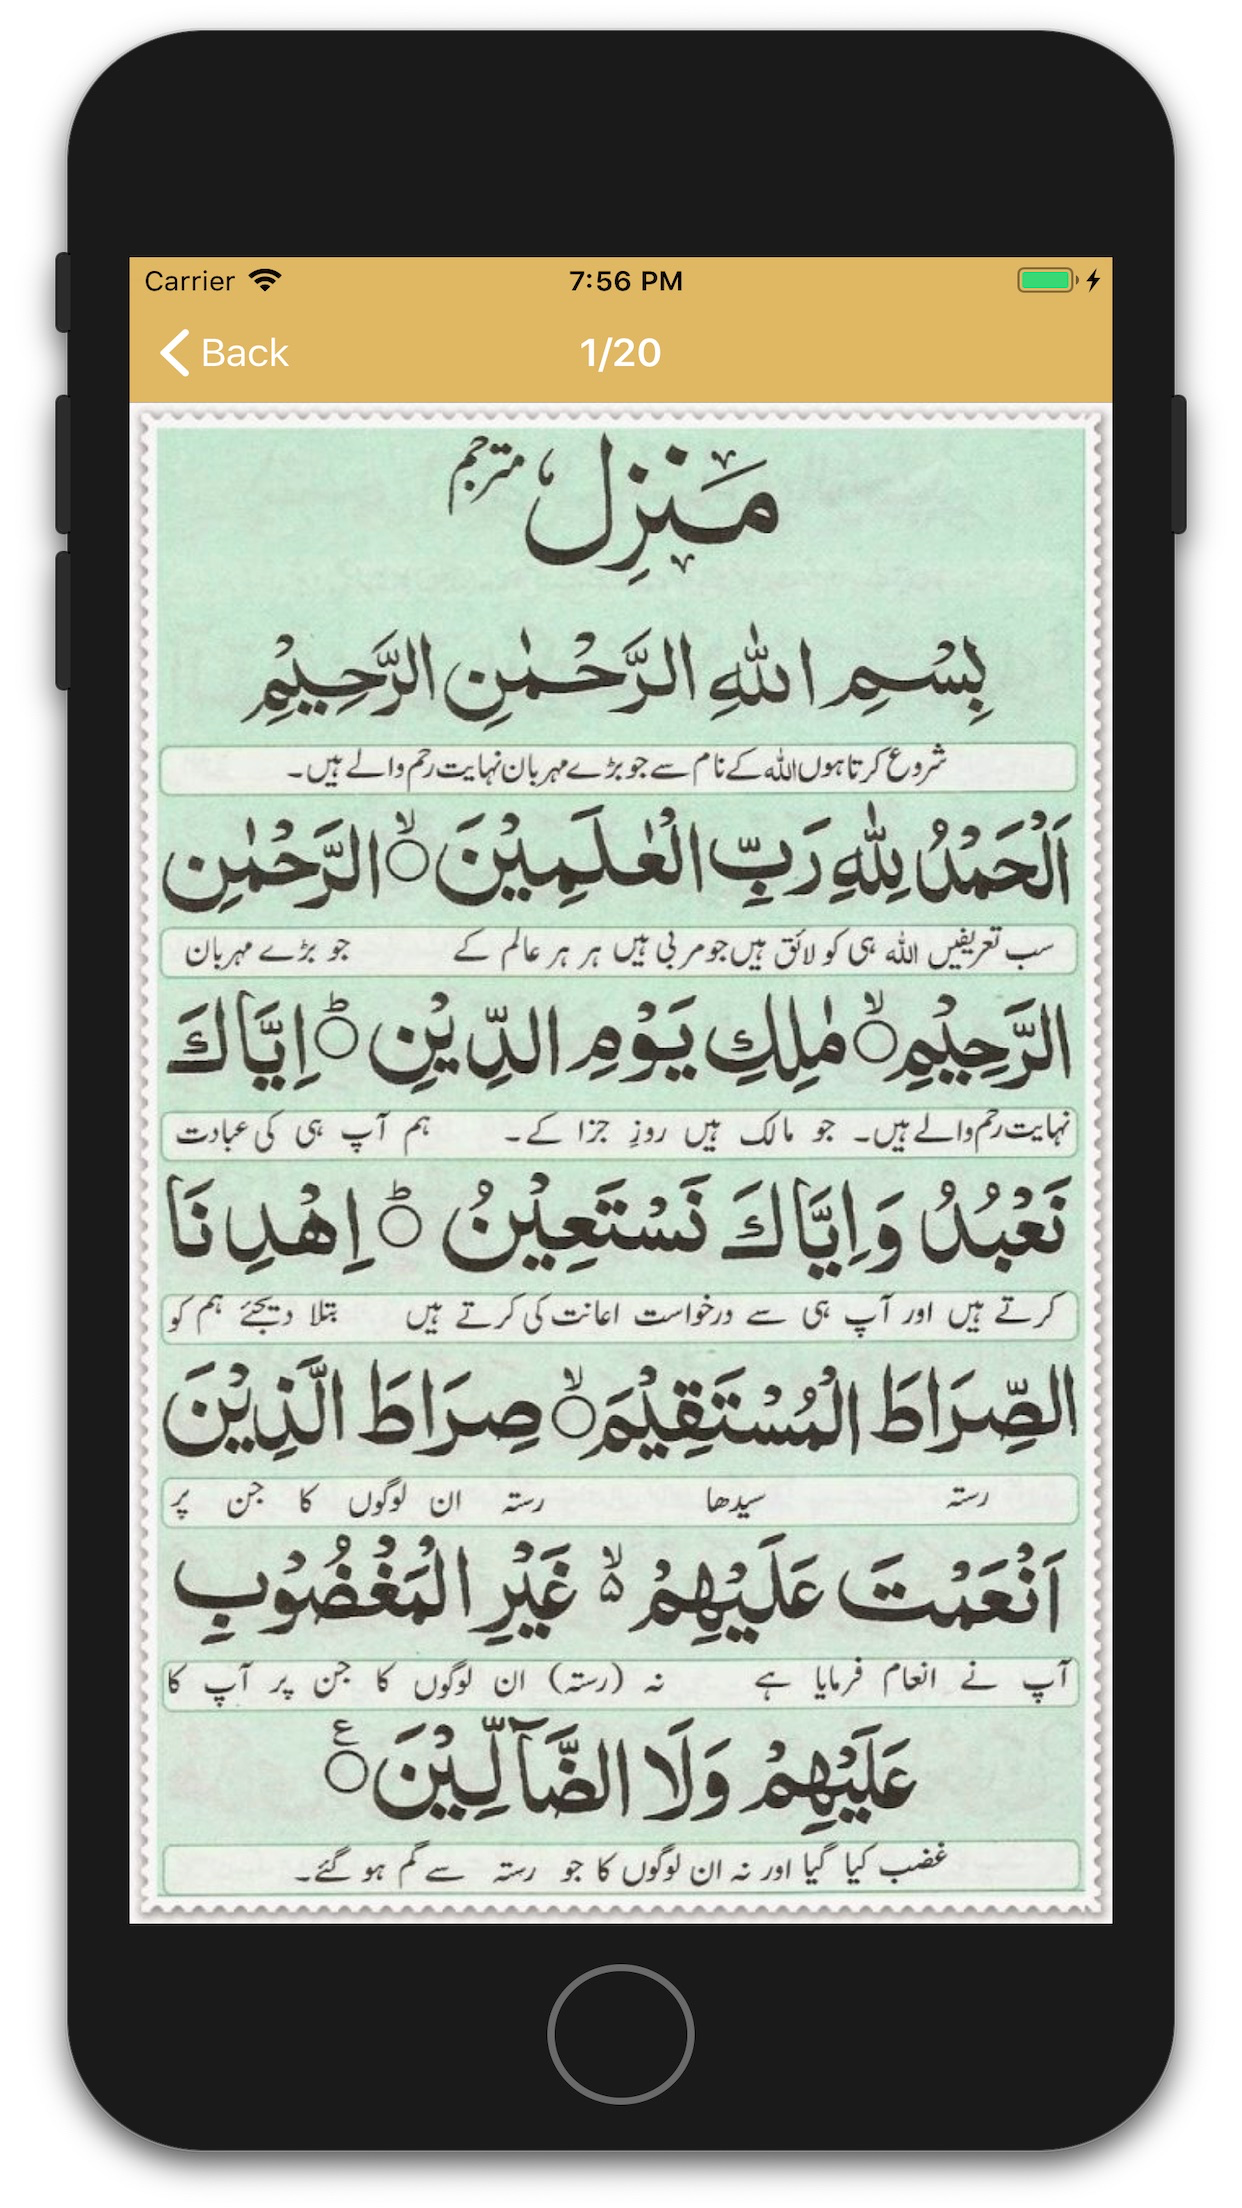 Carrier 7:56 PM
Back 1/20
مَنْزِلْ مترجم
بِسْمِ اللهِ الرَّحْمٰنِ الرَّحِيْمِ
شروع کرتا ہوں اللہ کے نام سے جو بڑے مہربان نہایت رحم والے ہیں۔
اَلْحَمْدُ لِلّٰهِ رَبِّ الْعٰلَمِيْنَ ۙ الرَّحْمٰنِ
سب تعریفیں اللہ ہی کو لائق ہیں جو مربی ہیں ہر ہر عالم کے جو بڑے مہربان
الرَّحِيْمِ ۙ مٰلِكِ يَوْمِ الدِّيْنِ ؕ اِيَّاكَ
نہایت رحم والے ہیں۔ جو مالک ہیں روزِ جزا کے۔ ہم آپ ہی کی عبادت
نَعْبُدُ وَاِيَّاكَ نَسْتَعِيْنُ ؕ اِهْدِنَا
کرتے ہیں اور آپ ہی سے درخواست اعانت کی کرتے ہیں بتلا دیجئے ہم کو
الصِّرَاطَ الْمُسْتَقِيْمَ ۙ صِرَاطَ الَّذِيْنَ
رستہ سیدھا رستہ ان لوگوں کا جن پر
اَنْعَمْتَ عَلَيْهِمْ ۙ۵ غَيْرِ الْمَغْضُوْبِ
آپ نے انعام فرمایا ہے نہ (رستہ) ان لوگوں کا جن پر آپ کا
عَلَيْهِمْ وَلَا الضَّآلِّيْنَ ع
غضب کیا گیا اور نہ ان لوگوں کا جو رستہ سے گم ہو گئے۔